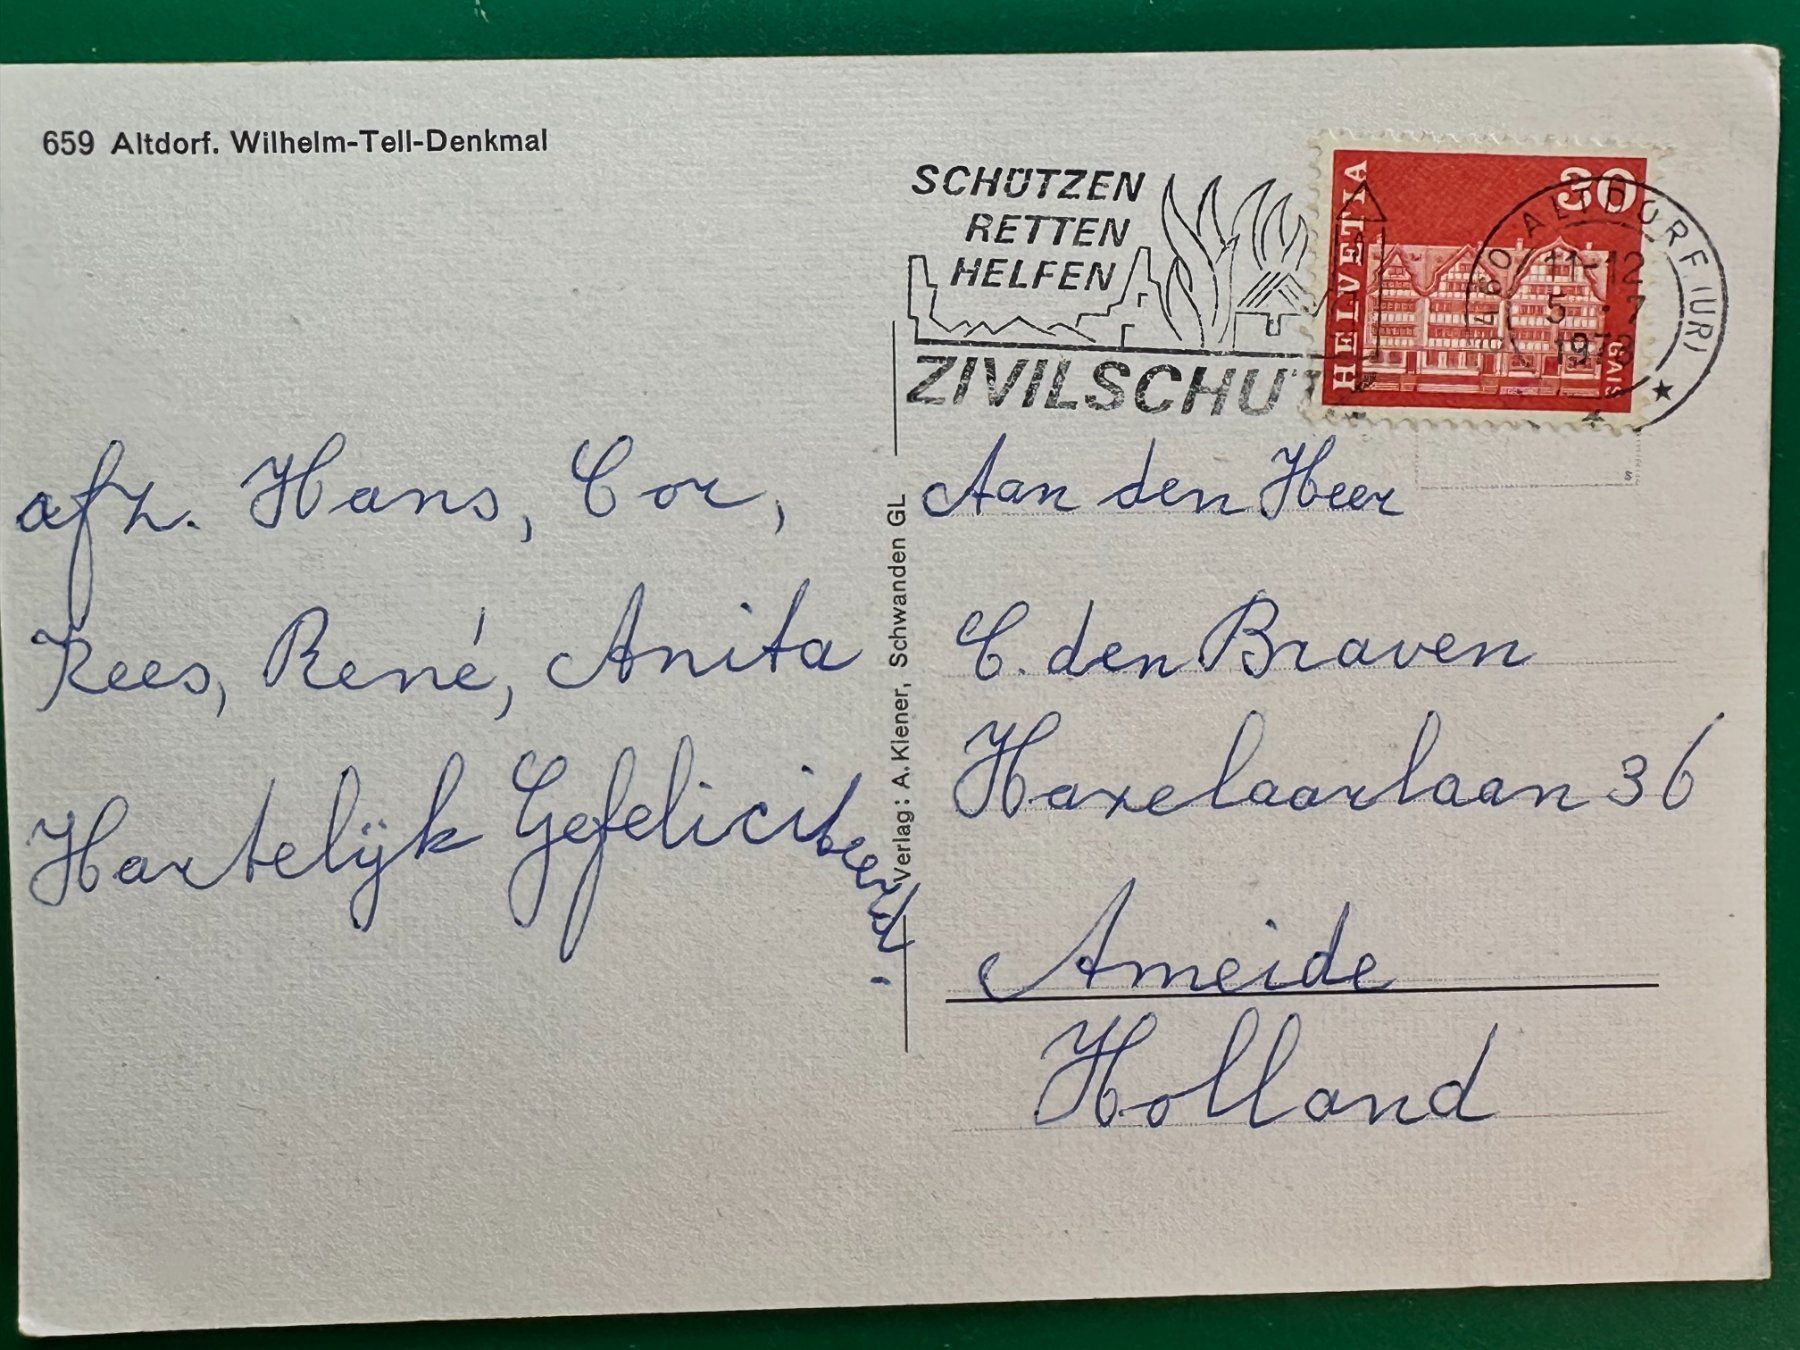 659 Altdorf. Wilhelm-Tell-Denkmal
SCHÜTZEN
RETTEN
HELFEN
ZIVILSCHUTZ
HELVETIA
30
GAIS
6460 ALTDORF (URI)
11-12
5.-7
1973
afz. Hans, Cor,
Kees, René, Anita
Hartelijk Gefeliciteerd!
Verlag: A. Kiener, Schwanden GL
Aan den Heer
C. den Braven
Hazelaarlaan 36
Ameide
Holland